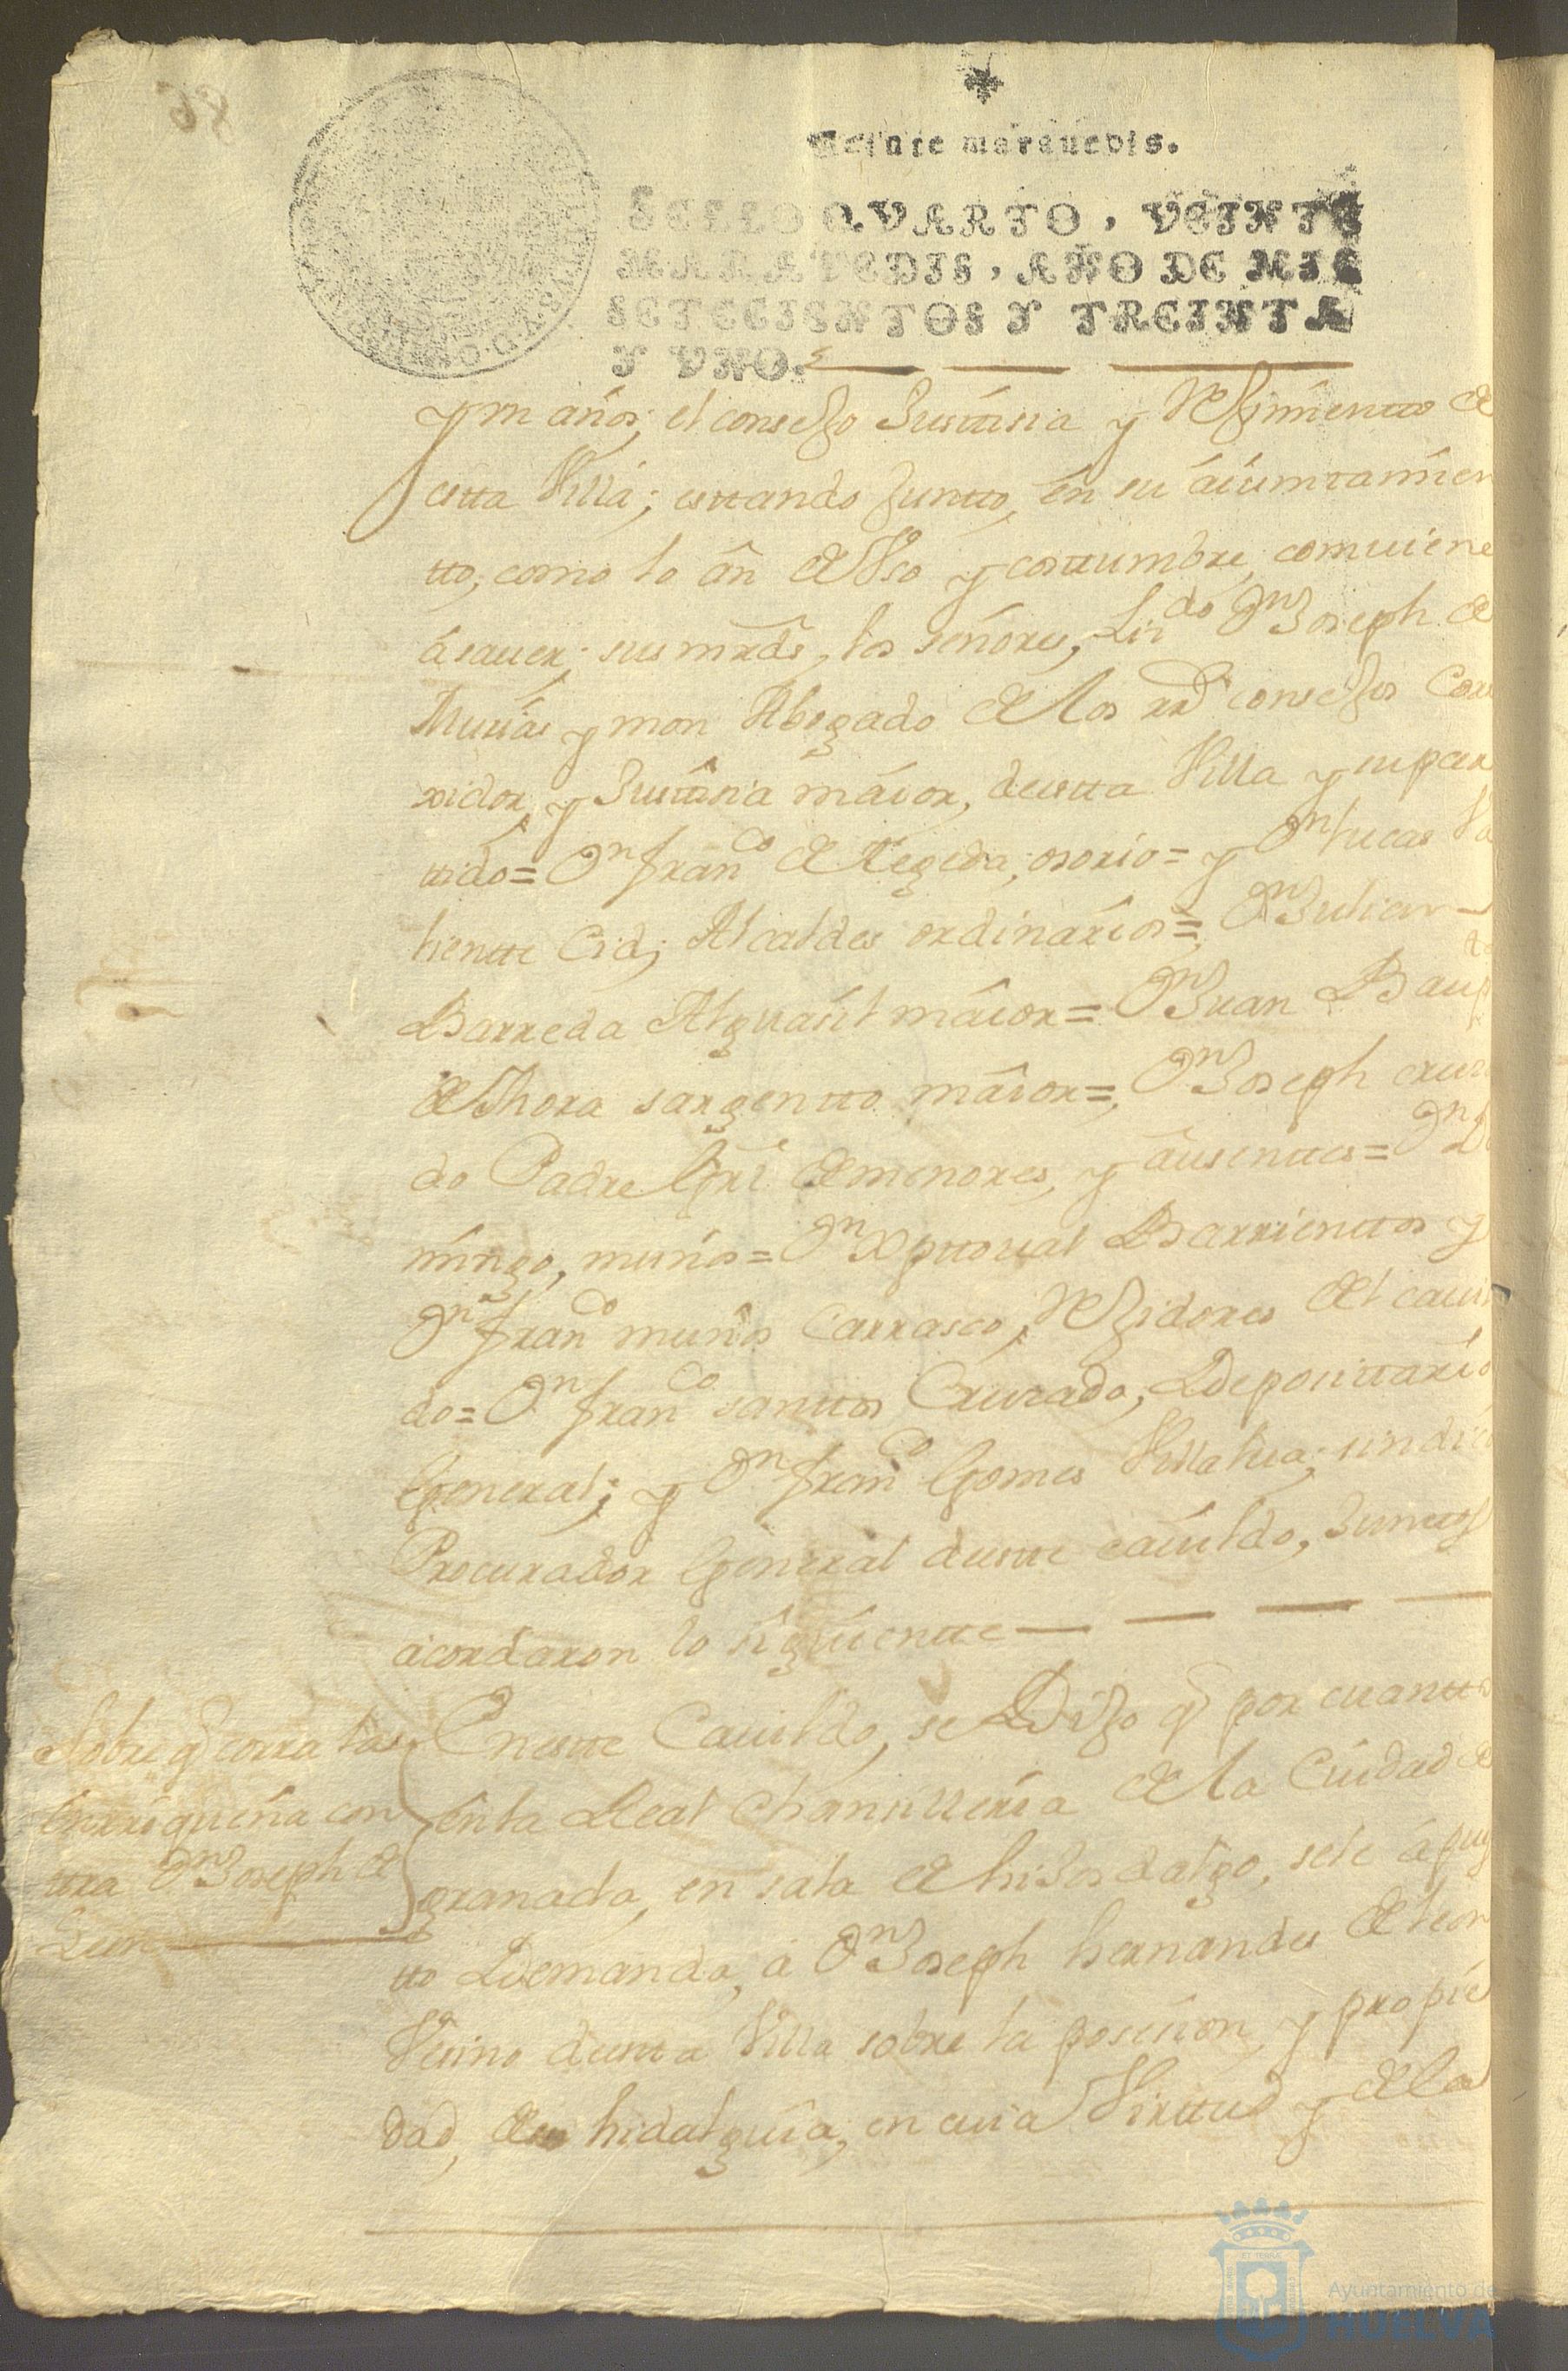 86
Veinte marauedis.
SELLO QVARTO, VEINTE
MARAVEDIS, AÑO DE MIL
SETECIENTOS Y TREINTA
Y VNO.
y un años; el conseJo Justtisia y ReJimientto de
estta Villa; esttando Juntto, en su aiunttamien
tto, como lo an de Vso y costtumbre, comuiene
á sauer; sus mrds, los señores, Lizdo Dn Joseph de
Murias y mon Abogado de los rrs conseJos Corre
xidor, y Justtisia maior, de estta Villa y su par
ttido= Dn franco de Tegeda, osorio= y Dn lucas Va
lientte Cid; Alcaldes ordinarios= Dn Julian
Barreda Alguasil maior= Dn Juan Baupta
de Thora sargentto maior=, Dn Joseph crusa
do Padre Gral de menores, y ausenttes= Dn Do
mingo, muñis= Dn Xpttoual Barrienttos y
Dn franco muñis Carrasco, ReJidores del cauil
do= Dn franco santtos Crusado, Deposittario
General; y Dn franco Gomes Villalua; sindico
Procurador General destte cauildo, Junttos
acordaron lo siguientte
En estte Cauildo, se DiJo q por cuantto
en la Real Chansilleria de la Ciudad de
granada, en sala de hiJos dalgo, se le á pues
tto Demanda, á Dn Joseph hernandes de leon
Vesino destta Villa sobre la posesion y propie
dad, de su hidalguia, en cuia Virttud y de la
Sobre q corra la
enrriqueña con
ttra Dn Joseph de
Leon
Ayuntamiento de
HUELVA